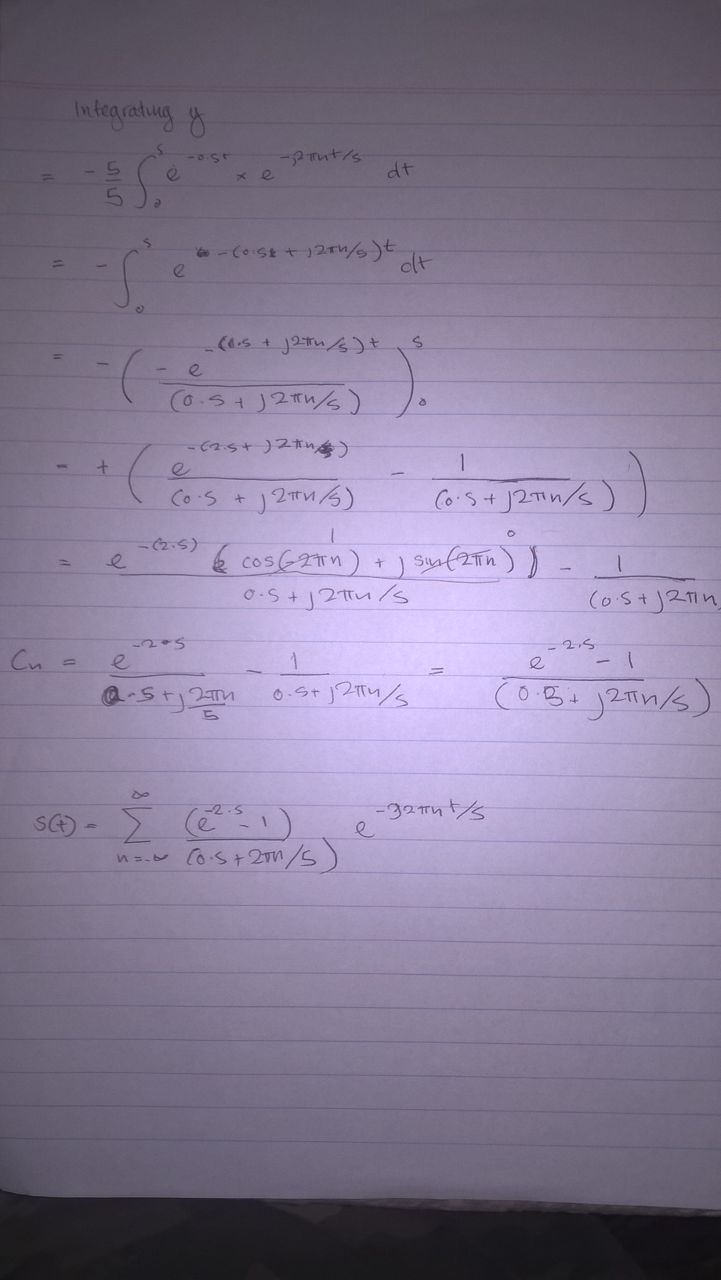 Integrating y
= - 5/5 ∫₀⁵ e^(-0.5t) × e^(-j2πnt/5) dt
= - ∫₀⁵ e^(-(0.5t + j2πn/5)t) dt
= - ( - e^(-(0.5 + j2πn/5)t) / (0.5 + j2πn/5) )₀⁵
- + ( e^(-(2.5 + j2πn)) / (0.5 + j2πn/5) - 1 / (0.5 + j2πn/5) )
= e^(-(2.5)) ( cos(-2πn) + j sin(2πn) ) / 0.5 + j2πn/5 - 1 / (0.5 + j2πn
Cn = e^(-2.5) / 0.5 + j 2πn/5 - 1 / 0.5 + j2πn/5 = e^(-2.5) - 1 / (0.5 + j2πn/5)
S(t) = Σ_(n=-∞)^∞ (e^(-2.5) - 1) / (0.5 + 2πn/5) e^(-j2πnt/5)